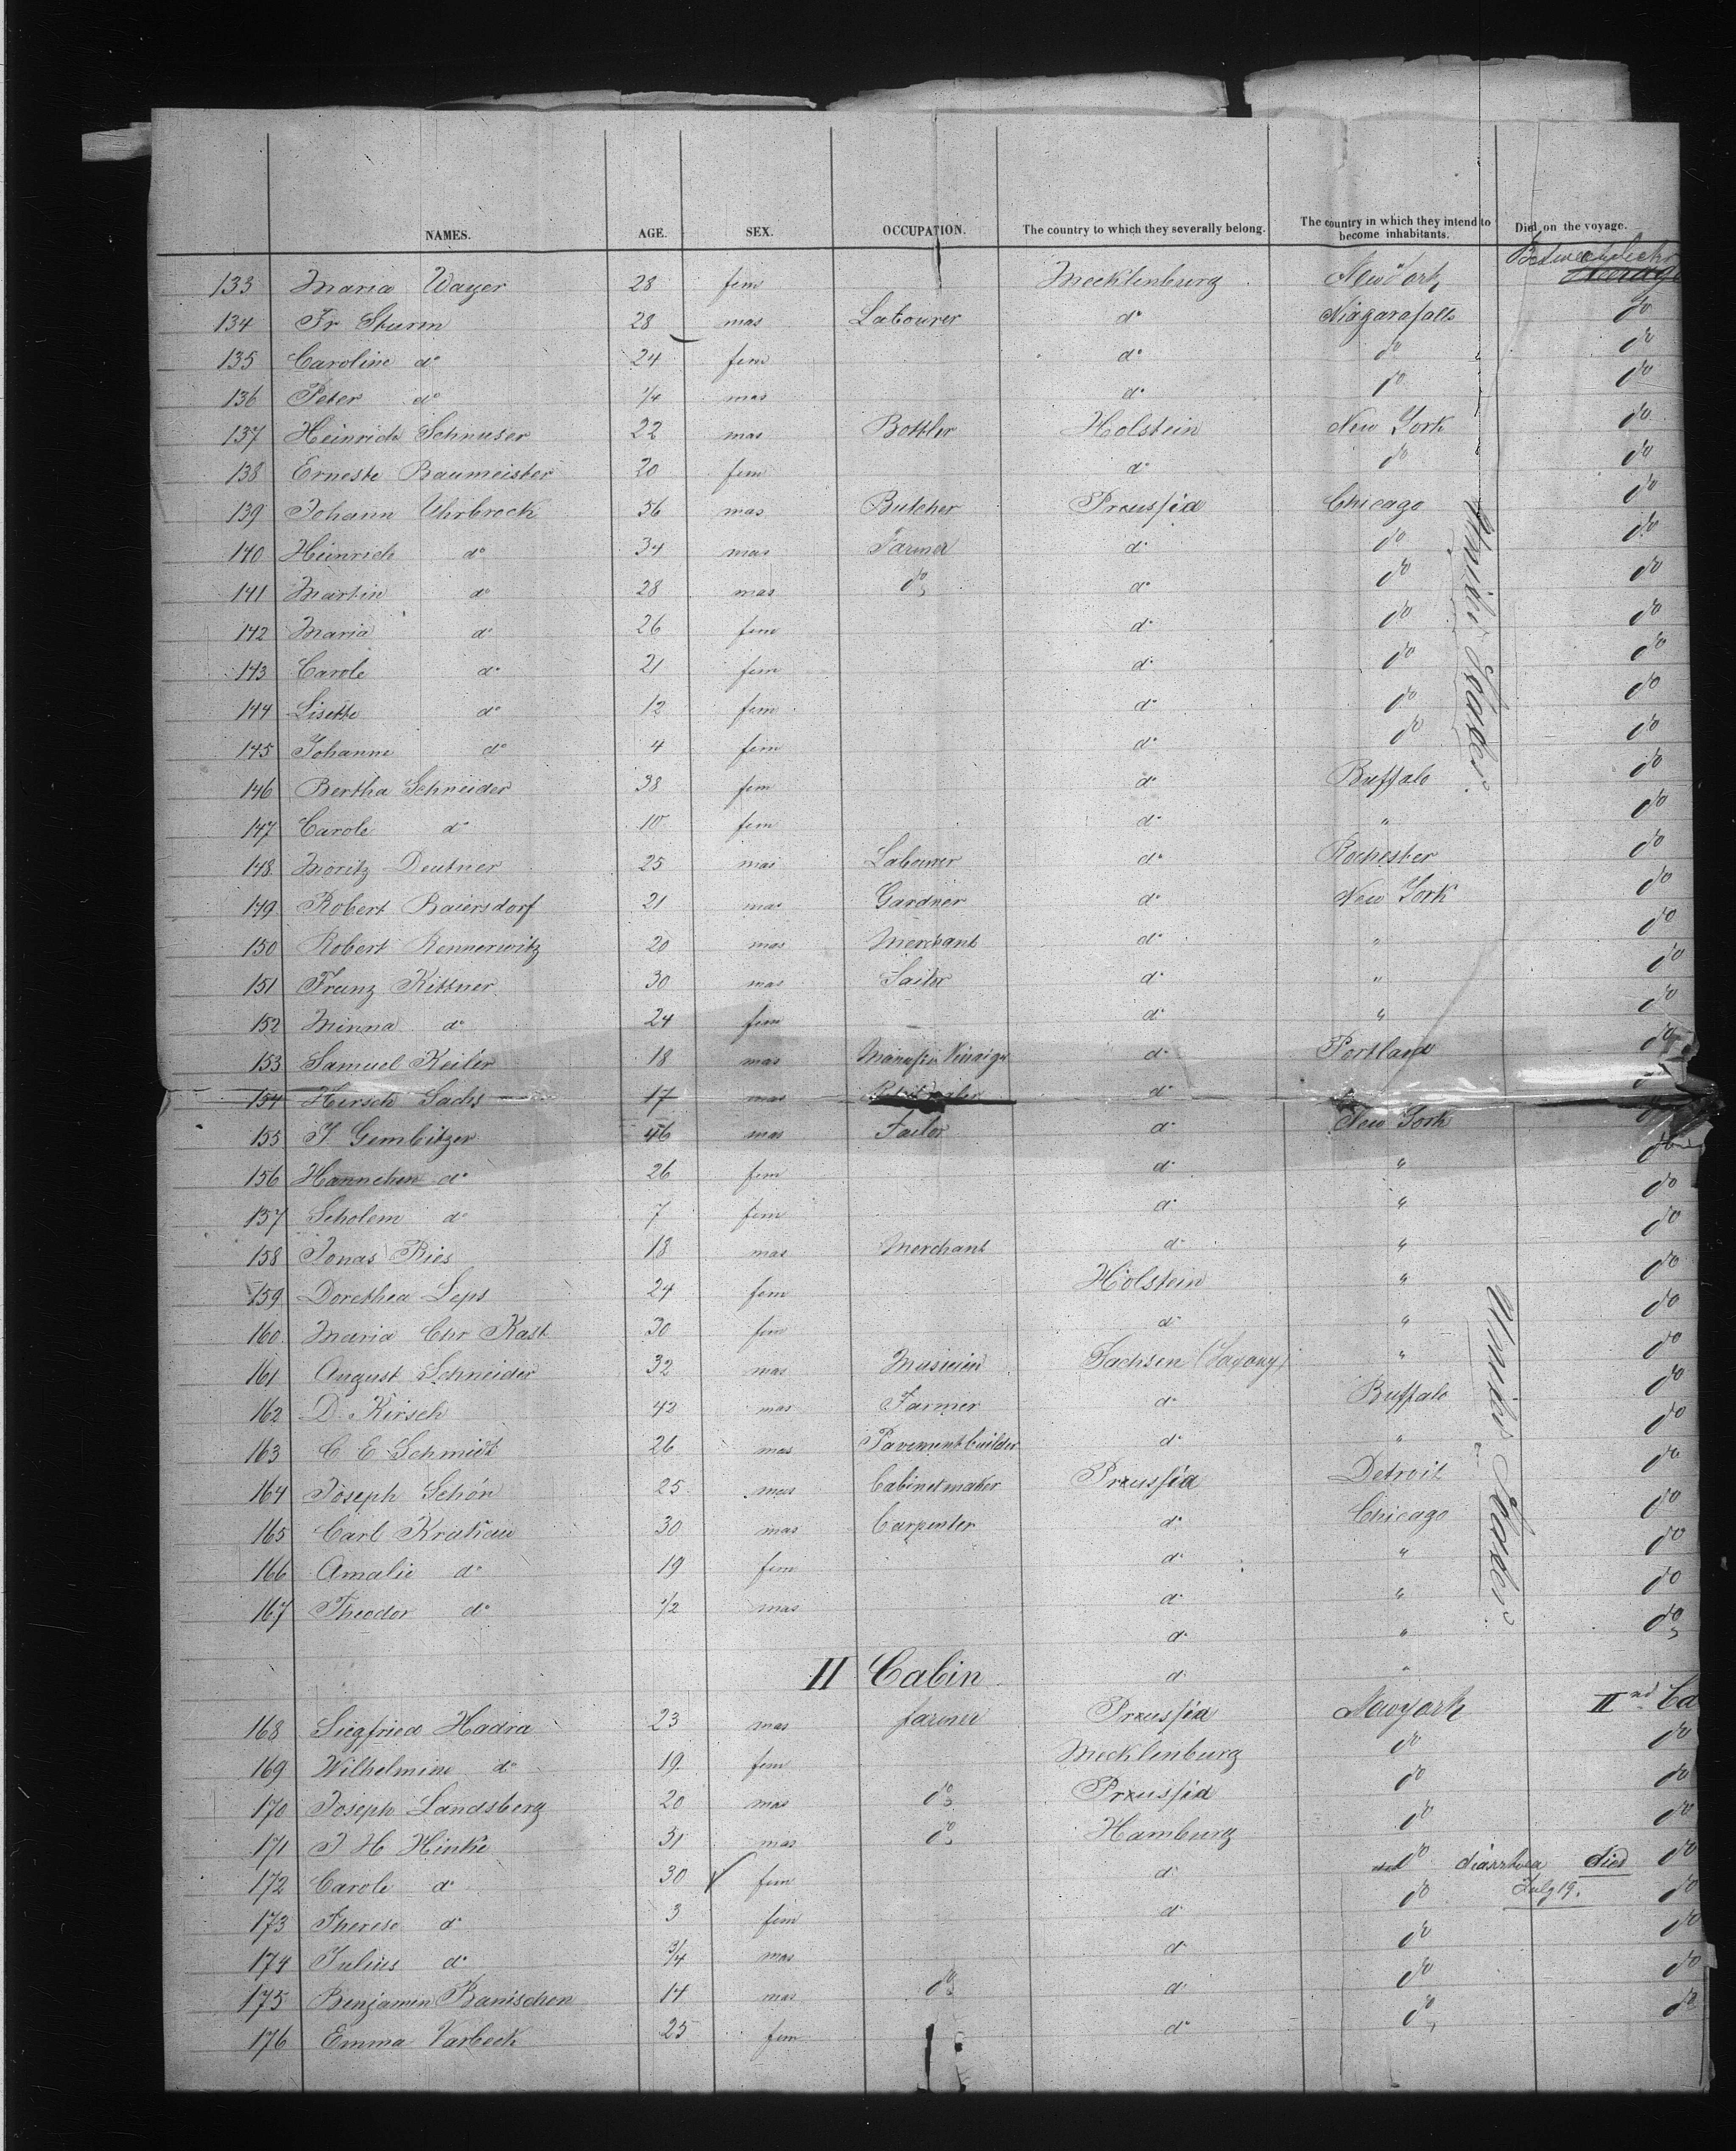 NAMES. AGE. SEX. OCCUPATION. The country to which they severally belong. The country in which they intend to become inhabitants. Died on the voyage.
133 Maria Wayer 28 fem Mecklenburg New York
134 Fr Sturm 28 mas Labourer do Niagarafalls do
135 Caroline do 24 fem do do do
136 Peter do 1/4 mas do do do
137 Heinrich Schnuser 22 mas Bottler Holstein New York do
138 Ernestte Baumeister 20 fem do do do
139 Johann Uhrbrock 56 mas Butcher Preussia Chicago do
140 Heinrich do 34 mas Farmer do do do
141 Martin do 28 mas do do do do
142 Maria do 26 fem do do do
143 Carole do 21 fem do do do
144 Lisette do 12 fem do do do
145 Johanne do 4 fem do do do
146 Bertha Schneider 38 fem do Buffalo do
147 Carole do 10 fem do " do
148 Moritz Deutner 25 mas Labourer do Rochester do
149 Robert Baiersdorf 21 mas Gardner do New York do
150 Robert Rennerwitz 20 mas Merchant do " do
151 Franz Kittner 30 mas Sailor do " do
152 Minna do 24 fem do " do
153 Samuel Keiler 18 mas do Portland do
154 Hirsch Sachs 17 mas do
155 J Gembitzer 46 mas Tailor do New York do
156 Hannchen do 26 fem do " do
157 Scholem do 7 fem do " do
158 Jonas Ries 18 mas Merchant do " do
159 Dorethea Leps 24 fem Holstein " do
160 Maria Chr Kast 30 fem do " do
161 August Schneider 32 mas Musicien Sachsen (Saxony) " do
162 D. Kirsch 42 mas Farmer do Buffalo do
163 C E Schmidt 26 mas Pavementbuilder do " do
164 Joseph Schön 25 mas Cabinetmaker Preussia Detroit do
165 Carl Krutiau 30 mas Carpenter do Chicago do
166 Amalie do 19 fem do " do
167 Theodor do 1/2 mas do " do
do " do
II Cabin do "
168 Siegfried Hadra 23 mas farmer Preussia Newyork IInd Ca
169 Wilhelmine do 19 fem Mecklenburg do do
170 Joseph Landsberg 20 mas do Preussia do do
171 J H Hinke 31 mas do Hamburg do do
172 Carole do 30 fem do do diarrhoea died do
July 19.
173 Therese do 3 fem do do do
174 Julius do 3/4 mas do do do
175 Benjamin Banischen 14 mas do do do do
176 Emma Varbeck 25 fem do do do
United States.
United States.